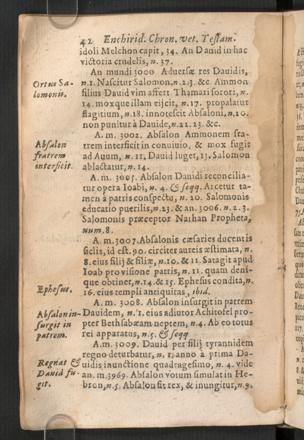 42 Enchirid. Chron. vet. Testam.
idoli Melchon capit, 34. An Dauid in hac
victoria crudelis, n. 37.
An mundi 3000 Aduersæ res Dauidis,
Ortus Sa-
lomonis.
n. 1. Nascitur Salomon, n. 2. 3. &c. Ammon
filius Dauid vim affert Thamari sorori, n.
14. mox que illam eijcit, n. 17. propalatur
flagitium, n. 18. innotescit Absaloni, n. 20.
non punitur à Dauide, n. 22. 23. &c.
Absalon
fratrem
interficit.
A. m. 3002. Absalon Ammonem fra-
trem interficit in conuiuio, & mox fugit
ad Auum, n. 11. Dauid luget, 13. Salomon
ablactatur, n. 14.
A. m. 3005. Absalon Dauidi reconcilia-
tur opera Ioabi, n. 4. & seqq. Arcetur ta-
men à patris conspectu, n. 20. Salomonis
educatio puerilis, n. 23. & an. 3006. n. 2. 3.
Salomonis præceptor Nathan Propheta,
num. 8.
A. m. 3007. Absalonis cæsaries ducentis
siclis, id est. 90. circiter aureis æstimata, n.
8. eius filij & filiæ, n. 10. & 11. Satagit apud
Ioab pro visione patris, n. 11. quam deni-
que obtinet, n. 14. & 15. Ephesus condita, n.
Ephesus.
16. eius templi antiquitas, ibid.
A. m. 3008. Absalon insurgit in patrem
Absalon in-
surgit in
patrem.
Dauidem, n. 1. eius adiutor Achitofel pro-
pter Bethsabæam neptem, n. 4. Ab eo totus
rei apparatus, n. 5. & seqq
A. m. 3009. Dauid per filij tyrannidem
Regnat &
Dauid fu-
git.
regno deturbatur, n. 1. anno à prima Da-
uidis inunctione quadragesimo, n. 4. vide
an. m. 3969. Absalon votum simulat in He-
bron, n. 5. Absalon fit rex, & inungitur, n. 9.